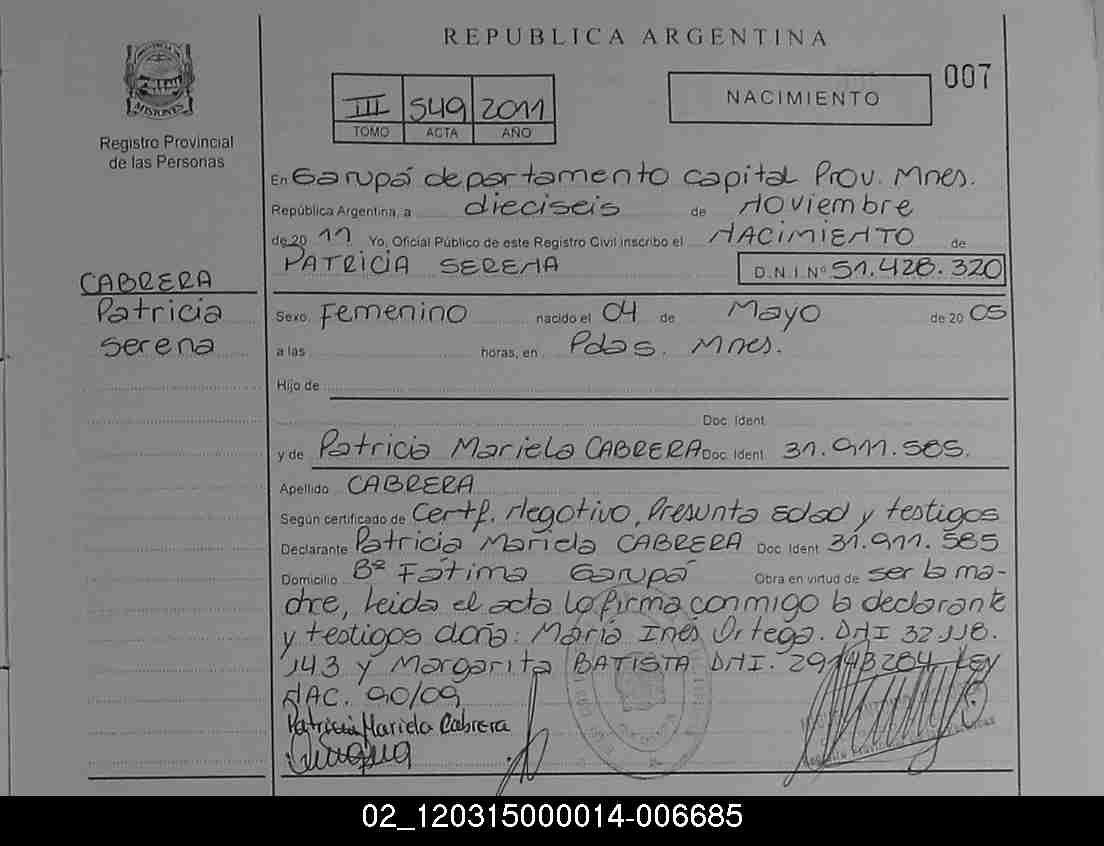 REPUBLICA ARGENTINA
007
III 549 2011
TOMO ACTA AÑO
NACIMIENTO
MISIONES
Registro Provincial
de las Personas
En Garupá departamento capital Prov. Mnes.
República Argentina, a dieciseis de Noviembre
de 20 11 Yo, Oficial Público de este Registro Civil inscribo el NACIMIENTO de
PATRICIA SERENA D.N.I.Nº 51.428.320
CABRERA
Patricia
Serena
Sexo Femenino nacido el 04 de Mayo de 20 05
a las horas, en Pdas. Mnes.
Hijo de
Doc. Ident
y de Patricia Mariela CABRERA Doc. Ident. 31.911.585.
Apellido CABRERA
Según certificado de Certf. Negativo, Presunta Edad y testigos
Declarante Patricia Mariela CABRERA Doc Ident 31.911.585
Domicilio Bº Fátima Garupá Obra en virtud de ser la ma-
dre, leida el acta la firma conmigo la declarante
y testigos doña: María Inés Ortega. DNI 32.118.
143 y Margarita BATISTA DNI. 29143284 LEY
NAC. 90/09
Patricia Mariela Cabrera
02_120315000014-006685